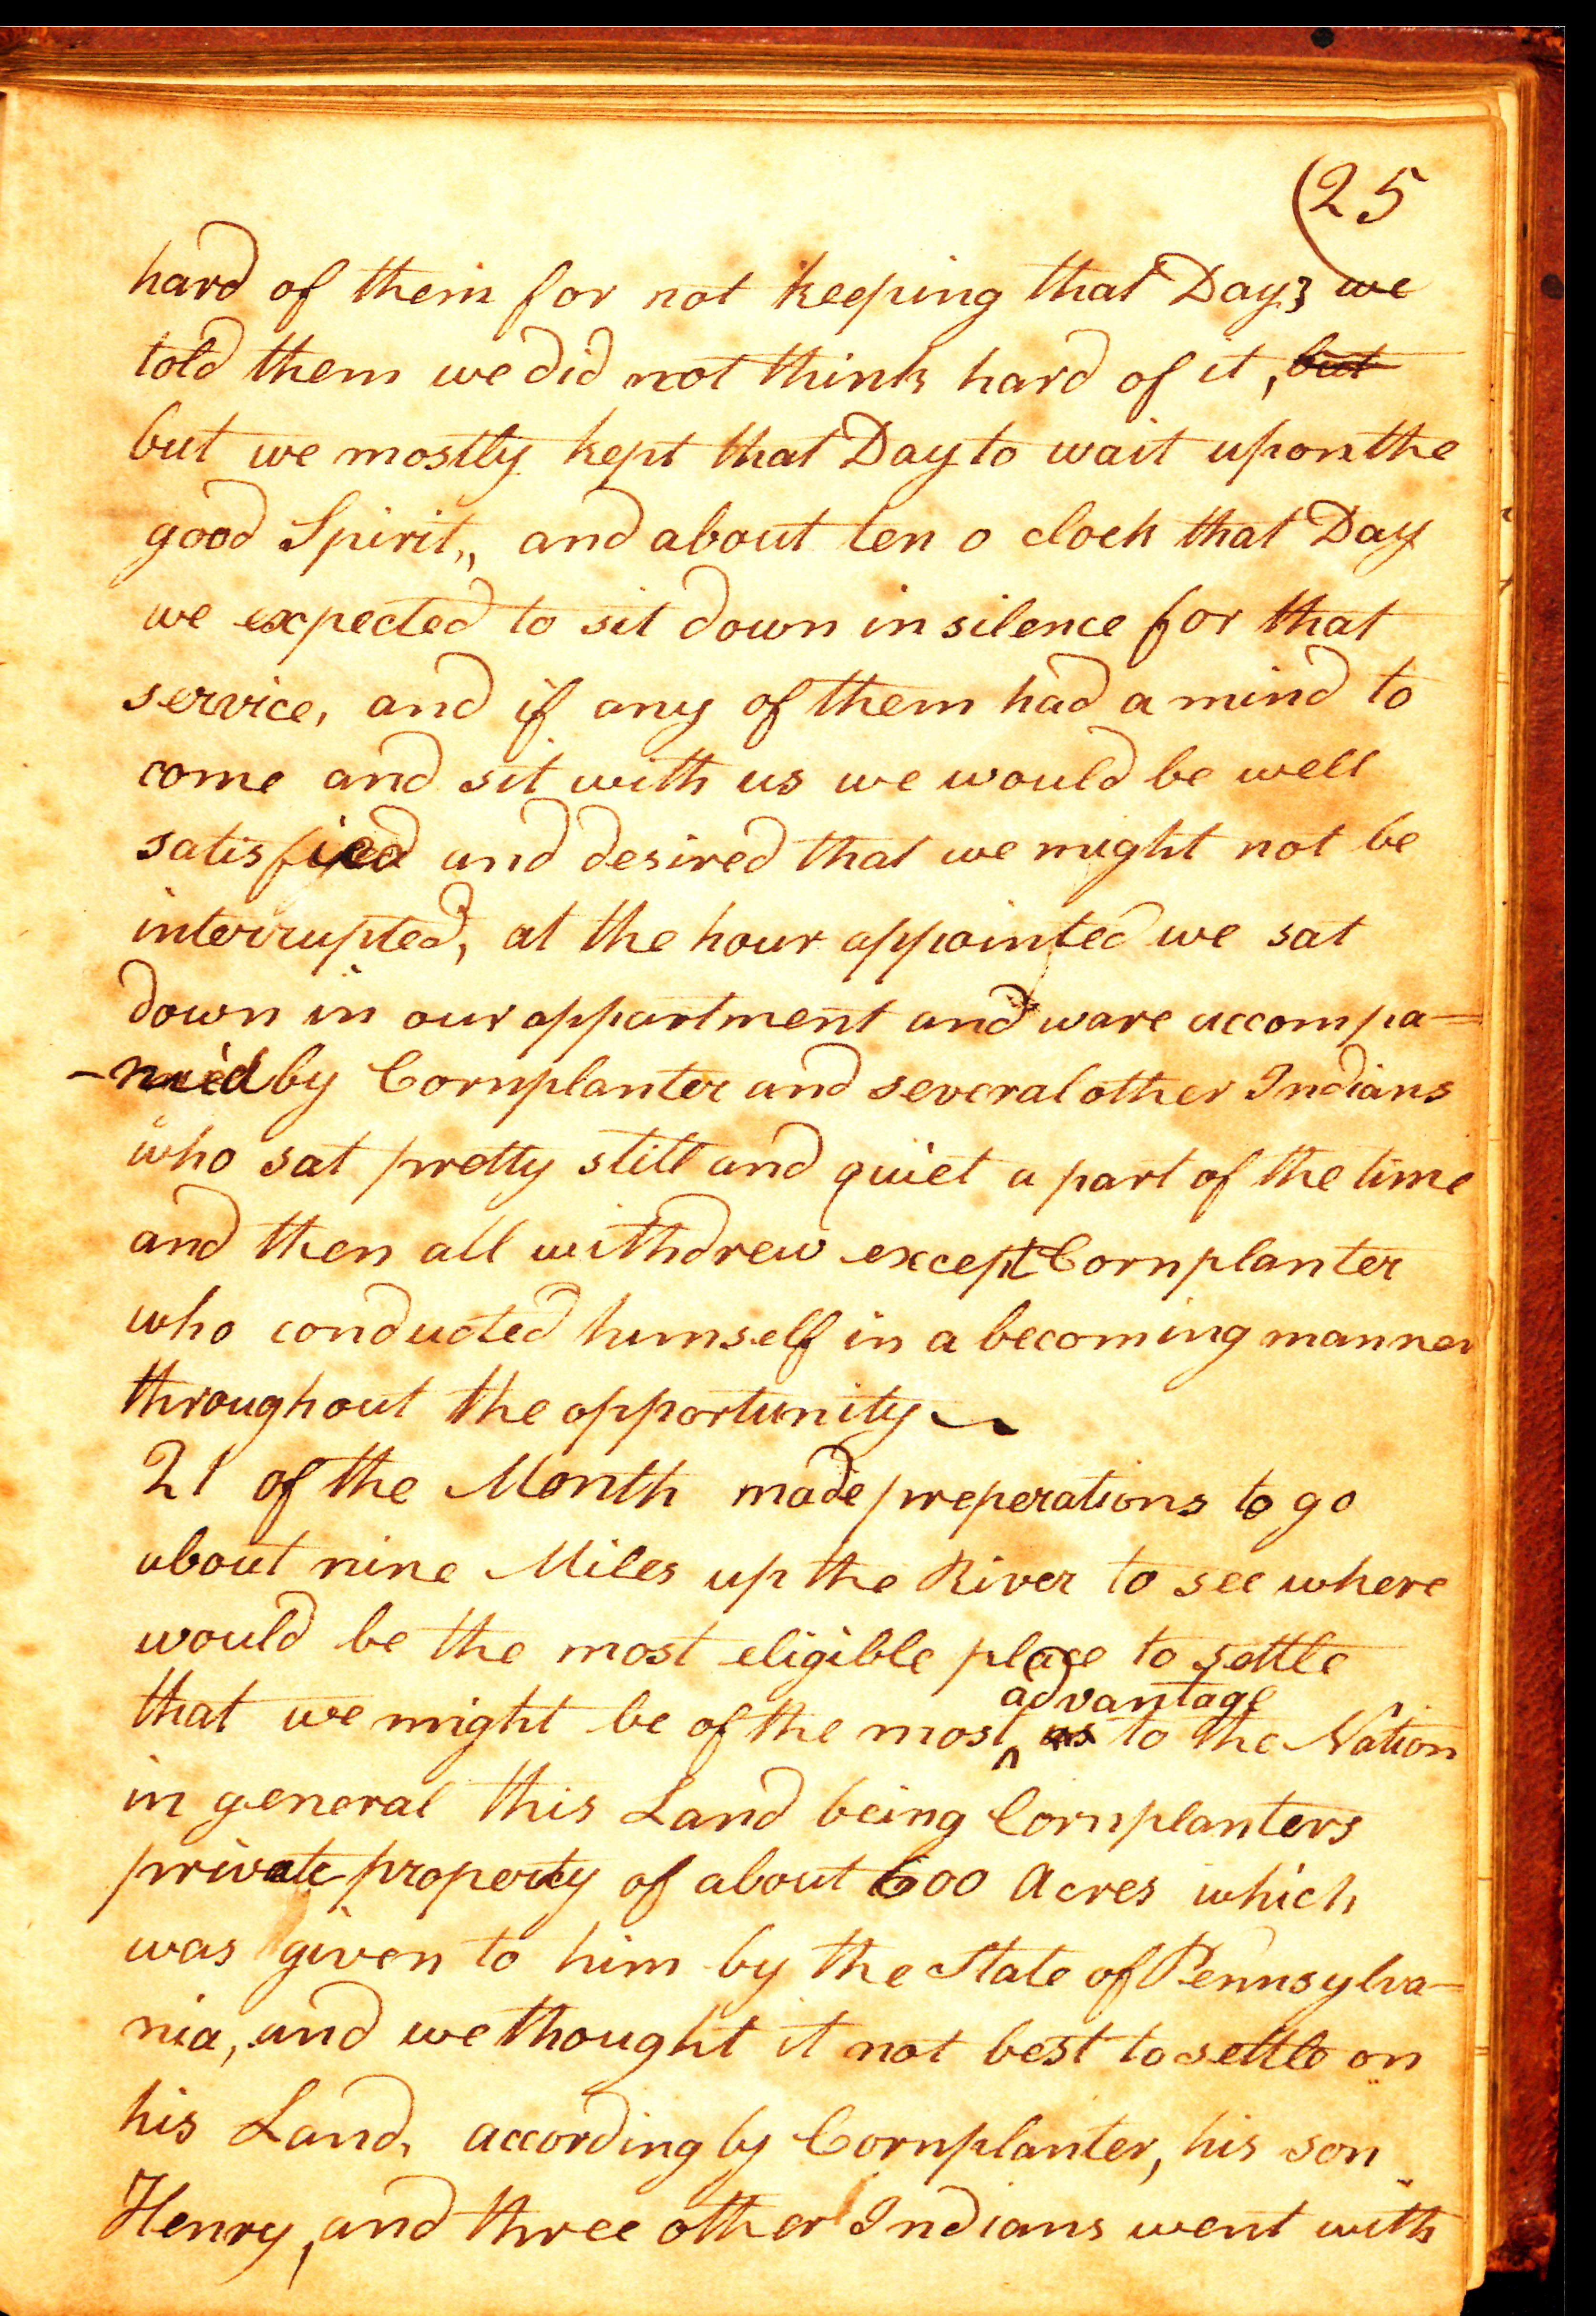 (25
hard of them for not keeping that Day; we
told them we did not think hard of it, but
but we mostly kept that Day to wait upon the
good Spirit,, and about ten o clock that Day
we expected to sit down in silence for that
service, and if any of them had a mind to
come and sit with us we would be well
satisfied and desired that we might not be
interrupted, at the hour appointed we sat
down in our appartment and ware accompa-
-nied by Cornplanter and several other Indians
who sat pretty still and quiet a part of the time
and then all withdrew except Cornplanter
who conducted himself in a becoming manner
throughout the opportunity
21 of the Month made preperations to go
about nine Miles up the River to see where
would be the most eligible place to settle
advantage
that we might be of the most ^ as to the Nation
in general this Land being Cornplanters
private property of about 600 Acres which
was given to him by the State of Pennsylva-
nia, and we thought it not best to settle on
his Land, accordingly Cornplanter, his son
Henry, and three other Indians went with